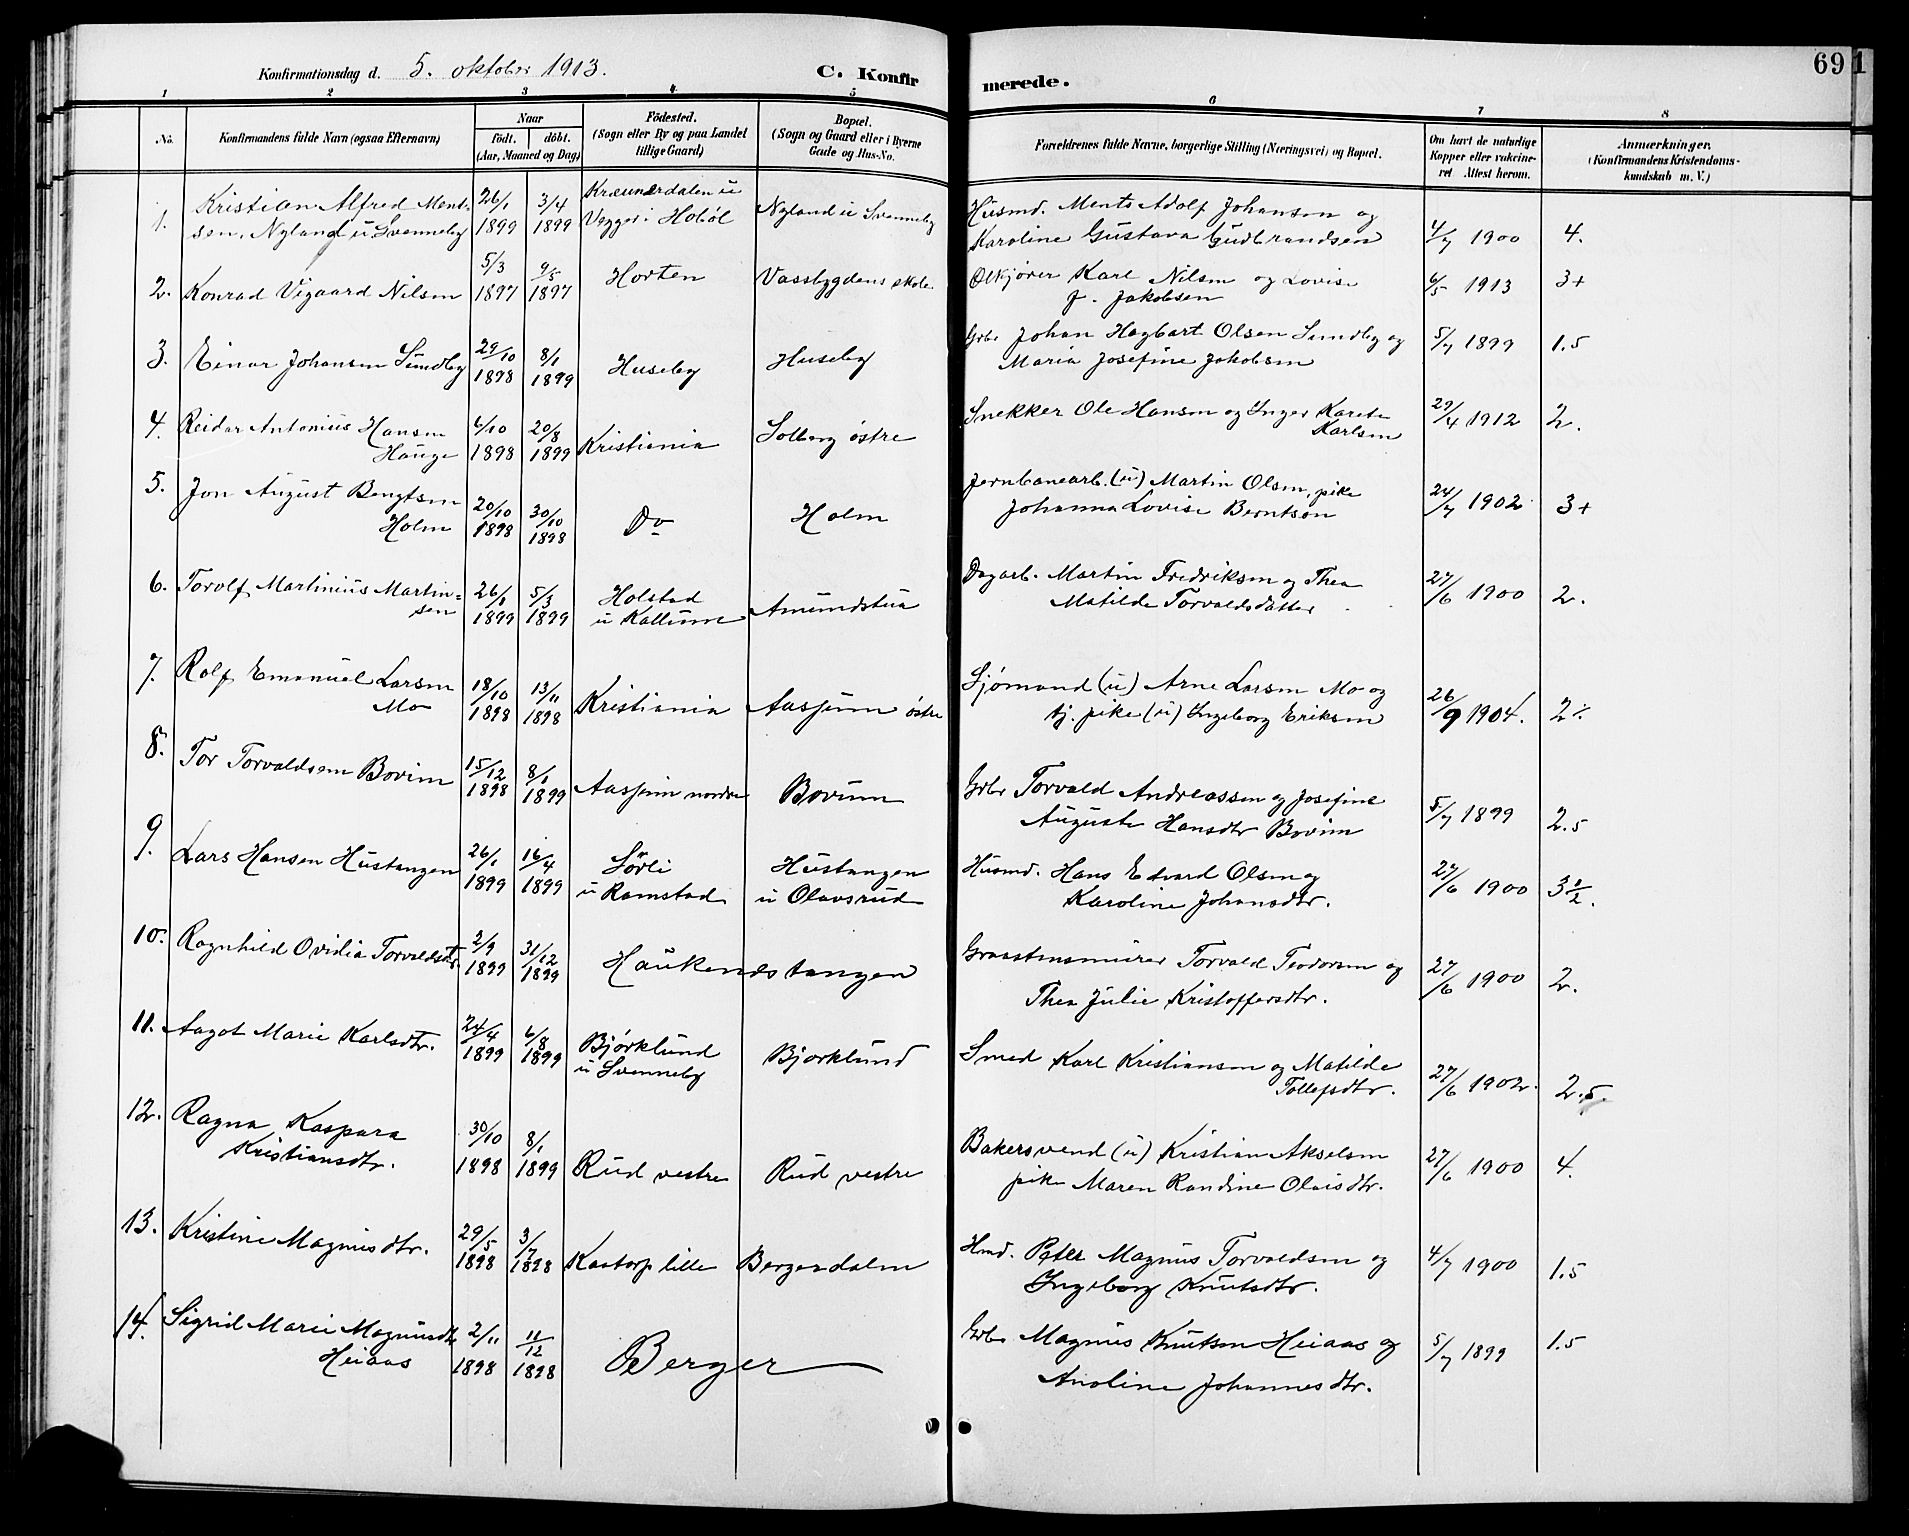 69
Konfirmationsdag d. 5. oktober 1913.
C. Konfirmerede.
1 2 3 4 5 6 7 8
No.
Konfirmandens fulde Navn (ogsaa Efternavn)
Naar
födt. döbt.
(Aar, Maaned og Dag)
Födested.
(Sogn eller By og paa Landet
tillige Gaard)
Bopæl.
(Sogn og Gaard eller i Byerne
Gade og Hus-No.
Forældrenes fulde Navne, borgerlige Stilling (Næringsvei) og Bopæl.
Om havt de naturlige
Kopper eller vakcine-
ret Attest herom.
Anmærkninger.
(Konfirmandens Kristendoms-
kundskab m. V.)
1. Kristian Alfred Ment-
sen, Nyland u Svenneby
26/1 1899 3/4 1899
i Hobøl
Nyland u Svenneby
Husmd. Ments Adolf Johansen og
Karoline Gustava Gudbrandsen
4/7 1900 4.
2. Konrad Vigaard Nilsen
5/3 1897 9/5 1897
Horten
Vassbygdens skole.
Ølkjører Karl Nilsen og Lovise
J. Jakobsen
6/5 1913 3+
3. Einar Johansen Sundby
29/10 1898 8/1 1899
Huseby
Huseby
Grbr Johan Hagbart Olsen Sundby og
Maria Josefine Jakobsen
5/7 1899 1.5
4. Reidar Antonius Hansen
Hauge
6/10 1898 20/8 1899
Kristiania
Solberg østre
Snekker Ole Hansen og Inger Karete
Karlsen
29/4 1912 2.
5. Jon August Bengtsen
Holm
20/10 1898 30/10 1898
Do
Holm
Jernbanearb. (u) Martin Olsen, pike
Johanna Lovise Berntsen
24/7 1902 3+
6. Torolf Martinius Martin-
sen
26/1 1899 5/3 1899
Holstad
u Kallum
Amundstua
Dagarb. Martin Fredriksen og Thea
Matilde Torvaldsdatter
27/6 1900 2.
7. Rolf Emanuel Larsen
Mo
18/10 1898 13/11 1898
Kristiania
Aasjenm østre
Sjømand (u) Arne Larsen Mo og
tj. pike (u) Ingeborg Eriksen
26/9 1904. 2÷
8. Tor Torvaldsen Bovim
15/12 1898 8/1 1899
Aasjenm nordre
Bovum
Grbr Torvald Andreassen og Josefine
Auguste Hansdtr Bovim
5/7 1899 2.5
9. Lars Hansen Hustangen
26/1 1899 16/4 1899
Sørli
u Ramstad
Hustangen
u Olavsrud
Husmd. Hans Edvard Olsen og
Karoline Johansdtr.
27/6 1900
10. Ragnhild Ovidia Torvaldsdtr.
2/9 1899 31/12 1899
Haukenestangen
Graastensmurer Torvald Teodorsen og
Thea Julie Kristoffersdtr.
27/6 1900 2.
11. Aagot Marie Karlsdtr.
24/4 1899 6/8 1899
Bjørklund
u Svenneby
Bjorklund
Smed Karl Kristiansen og Matilde
Tollefsdtr.
27/6 1902. 2.5.
12. Ragna Kaspara
Kristiansdtr.
30/10 1898 8/1 1899
Rud vestre
Rud vestre
Bakersvend (u) Kristian Akselsen
pike Maren Randine Olaisdtr.
27/6 1900 4.
13. Kristine Magnusdtr.
29/5 1898 3/7 1898
Kastorp lille
Bergerdalen
Hmd. Peter Magnus Torvaldsen og
Ingeborg Knutsdtr.
4/7 1900 1.5
14. Sigrid Marie Magnusdtr
Heiaas
2/11 1898 11/12 1898
Berger
Grbr Magnus Knutsen Heiaas og
Anoline Johannesdtr.
5/7 1899 1.5